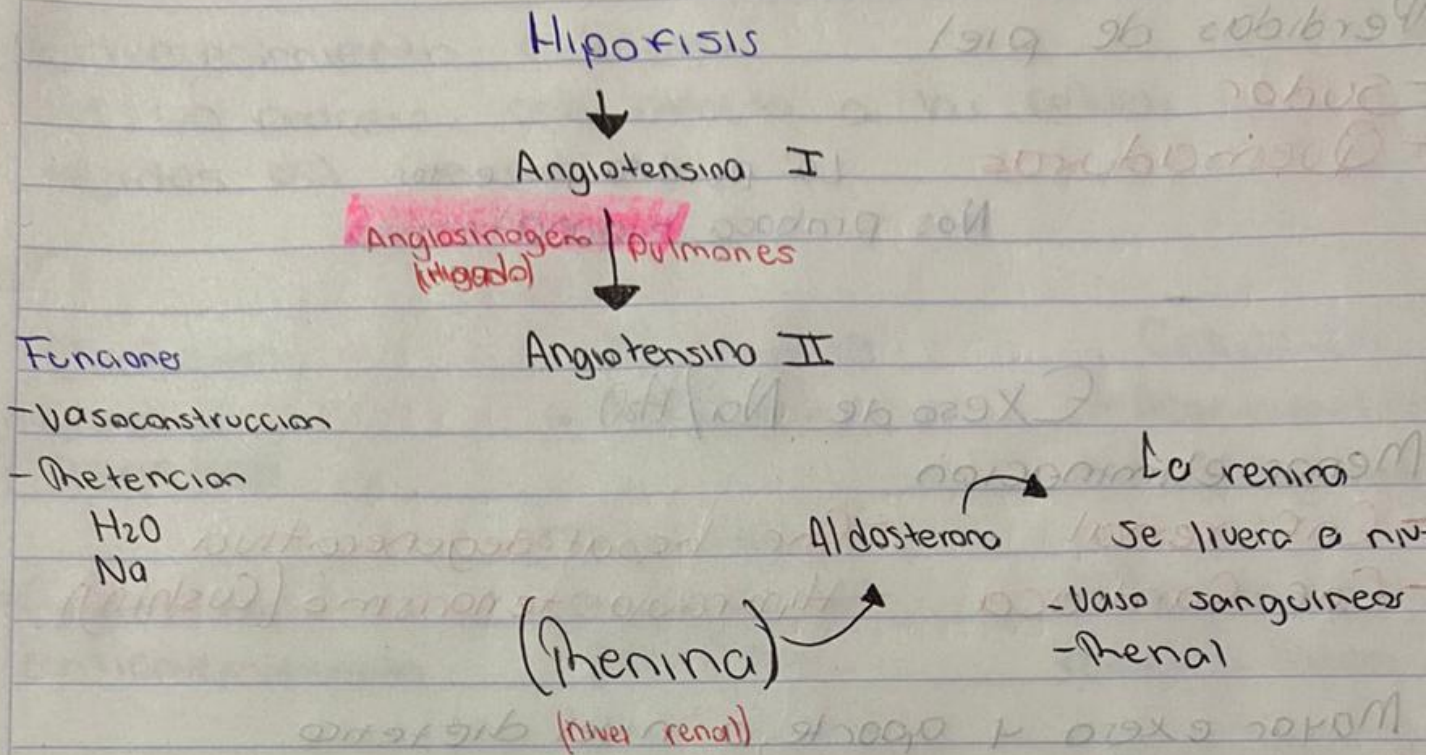 Hipofisis
Angiotensina I
Angiosinogeno
(Higado)
Pulmones
Angiotensina II
Funciones
-Vasoconstruccion
-Retencion
H2O
Na
Aldosterona
La renina
Se livera a niv
-Vaso sanguineos
-Renal
(Renina)
(nivel renal)